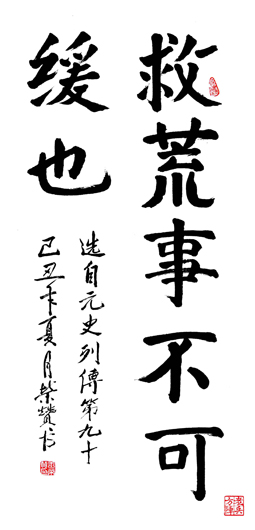 救荒事不可
缓也
选自元史列傳第九十
己丑年夏月荣赞书